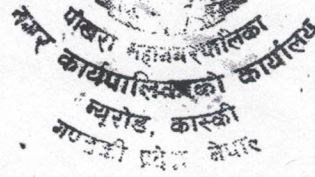 पोखरा महानगरपालिका
नगर कार्यपालिकाको कार्यालय
न्यूरोड, कास्की
गण्डकी प्रदेश नेपाल